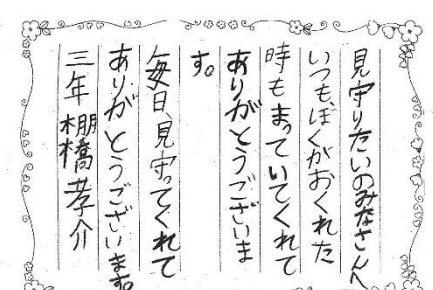 見守りたいのみなさんへ
いつもぼくがおくれた
時もまっていてくれて
ありがとうございま
す。
毎日、見守ってくれて
ありがとうございます。
三年 棚橋 孝介